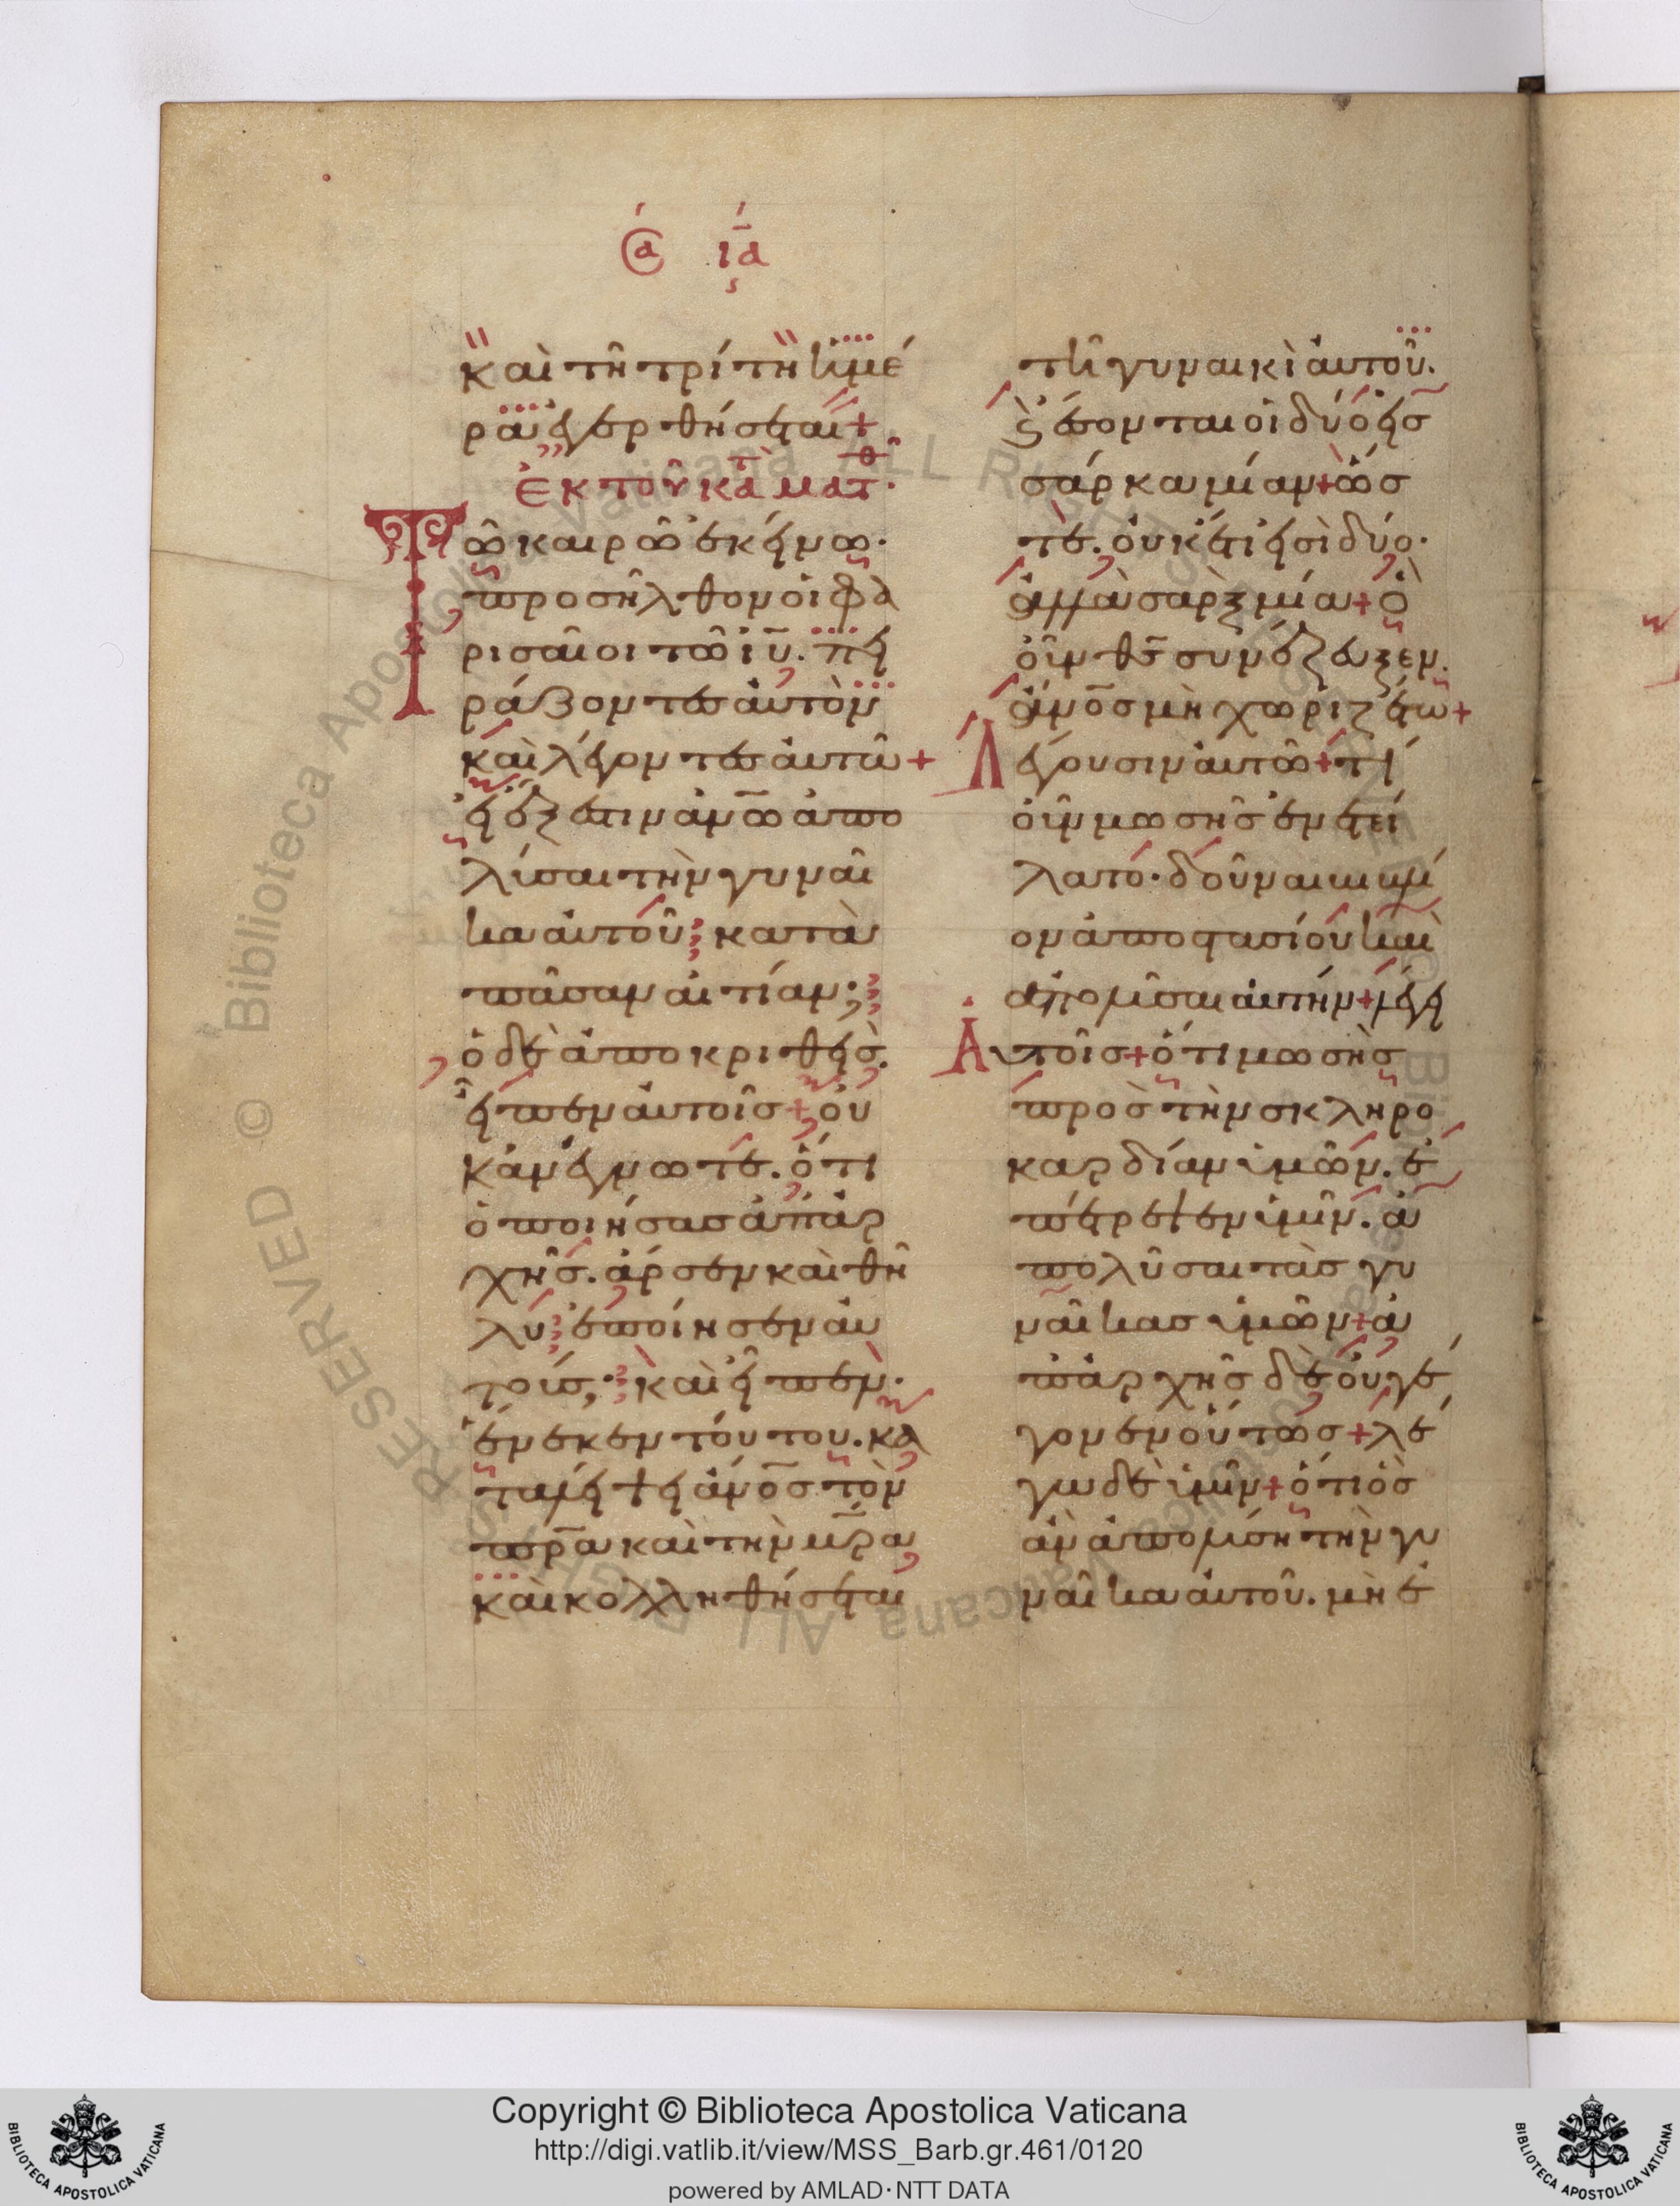 ⓐ ια
καὶ τῆ τρίτη ἡμέ
ρα ἐγερθήσεται+
ἐκ τοῦ κατὰ ματθ·
Τῶ καιρῶ ἐκείνω·
προσῆλθον οἱ φα
ρισαῖοι τῶ ἰῦ. πει
ράζοντες αὐτὸν
καὶ λέγοντες αὐτῶ+
εἰ ἔξεστιν ἀνω̅ ἀπο
λῦσαι τὴν γυναῖ
κα αὐτοῦ κατὰ
πᾶσαν αἰτίαν;
ὁ δὲ ἀποκριθεὶς.
εἶπεν αὐτοῖς+οὐ
κ ἀνέγνωτε. ὅτι
ὁ ποιήσας ἀπ' ἀρ
χῆς. ἄρσεν καὶ θῆ
λυ ἐποίησεν αὐ
τούς; καὶ εἶπεν·
ἕνεκεν τούτου. κα
ταλείψει ἀνο̅ς τὸν
πρ̅α καὶ τὴν μρ̅α
καὶ κολληθήσεται
τῆ γυναικὶ αὐτοῦ.
ϗ ἔσονται οἱ δύο εἰς
σάρκα μίαν+ὥσ
τε. οὐκέτι εἰσὶ δύο·
ἀλλὰ σὰρξ μία+ὃ
οὖν θς̅ συνέζευξεν.
ἀνο̅ς μὴ χωριζέτω+
Λέγουσιν αὐτῶ+τί
οὖν μωσῆς ἐνετεί
λατο· δοῦναι βιβλί
ον ἀποστασίου καὶ
ἀπολῦσαι αὐτήν+λέγει
Αὐτοῖς+ὅτι μωσῆς
πρὸς τὴν σκληρο
καρδίαν ὑμῶν. ἐ
πέτρεψεν ὑμῖν. ἀ
πολῦσαι τὰς γυ
ναῖκας ὑμῶν+ἀ
π' ἀρχῆς δὲ οὐ γέ
γονεν οὕτως+λέ
γω δὲ ὑμῖν+ὅτι ὃς
ἂν ἀπολύση τὴν γυ
ναῖκα αὐτοῦ. μὴ ἐ
© Biblioteca Apostolica Vaticana ALL RIGHTS RESERVED
Copyright © Biblioteca Apostolica Vaticana
http://digi.vatlib.it/view/MSS_Barb.gr.461/0120
powered by AMLAD·NTT DATA
BIBLIOTECA APOSTOLICA VATICANA
BIBLIOTECA APOSTOLICA VATICANA